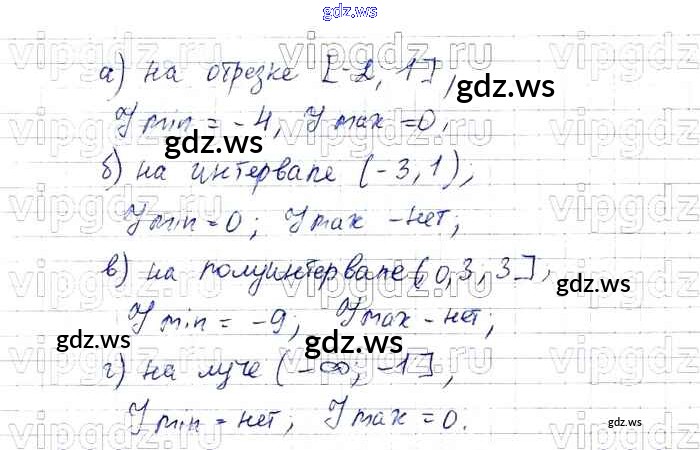 gdz.ws
а) на отрезке [-2, 1],
gdz.ws
Y min = -4, Y max = 0,
gdz.ws
б) на интервале (-3, 1);
Y min = 0; Y max - нет;
в) на полуинтервале (0,3, 3],
Y min = -9; Y max - нет;
gdz.ws
gdz.ws
г) на луче (-∞; -1],
Y min = нет; Y max = 0.
gdz.ws
vipgdz.ru